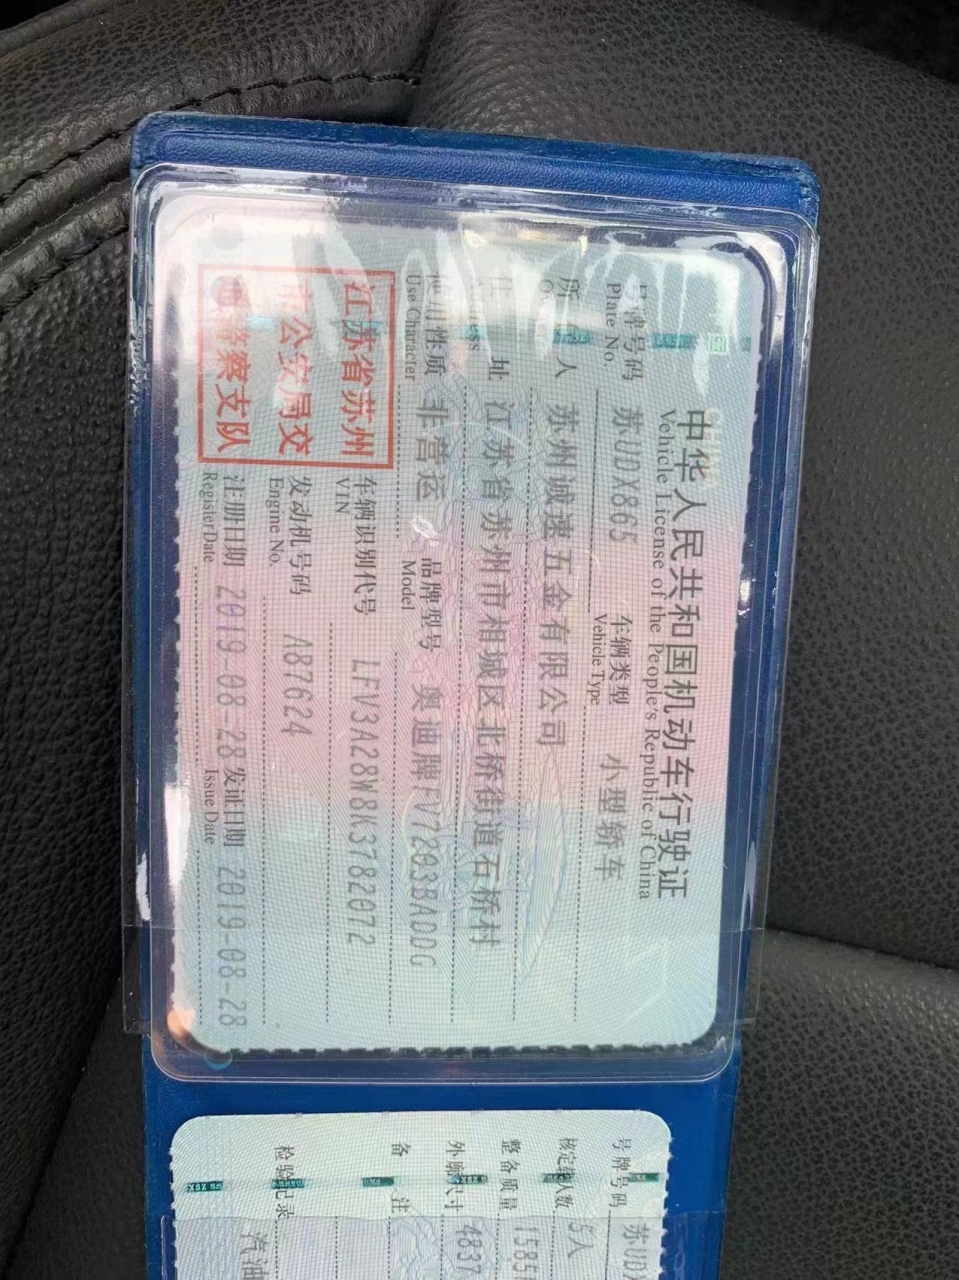 中华人民共和国机动车行驶证
Vehicle License of the People's Republic of China
号牌号码 苏UDX865 车辆类型 小型轿车
Plate No. Vehicle Type
所 人 苏州诚速五金有限公司
住 址 江苏省苏州市相城区北桥街道石桥村
使用性质 非营运 品牌型号 奥迪牌FV7203BADDG
Use Character Model
江苏省苏州
市公安局交
警察支队
车辆识别代号 LFV3A28W8K3782072
VIN
发动机号码 A87624
Engine No.
注册日期 2019-08-28 发证日期 2019-08-28
Register Date Issue Date
号牌号码 苏UD
核定载人数 5人
整备质量 1585
外廓尺寸 4837
备 注
检验记录
汽油